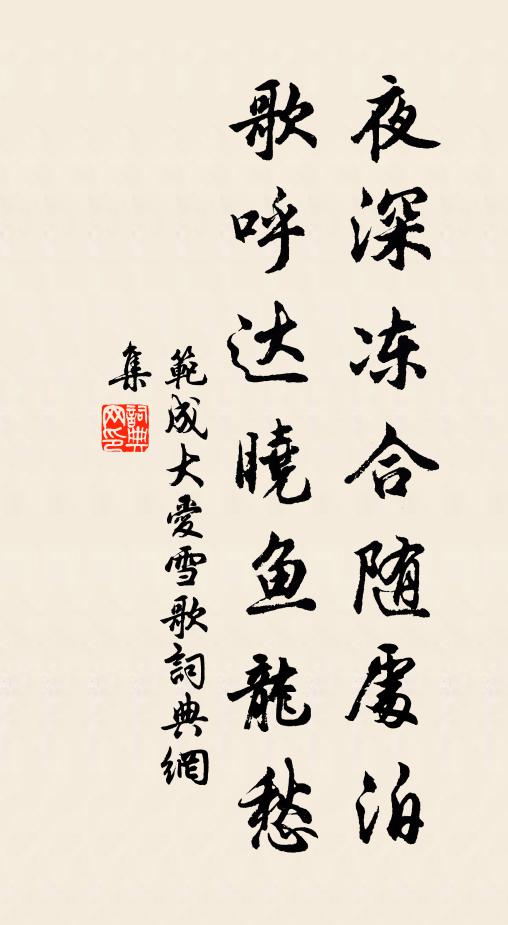 夜深冻合随處泊
歌呼达曉鱼龍愁
範成大愛雪歌詞典網
集
詞典网印